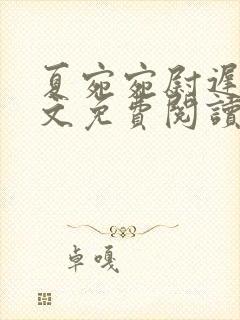 夏宛宛尉遲
文免費閱讀
卓嘎